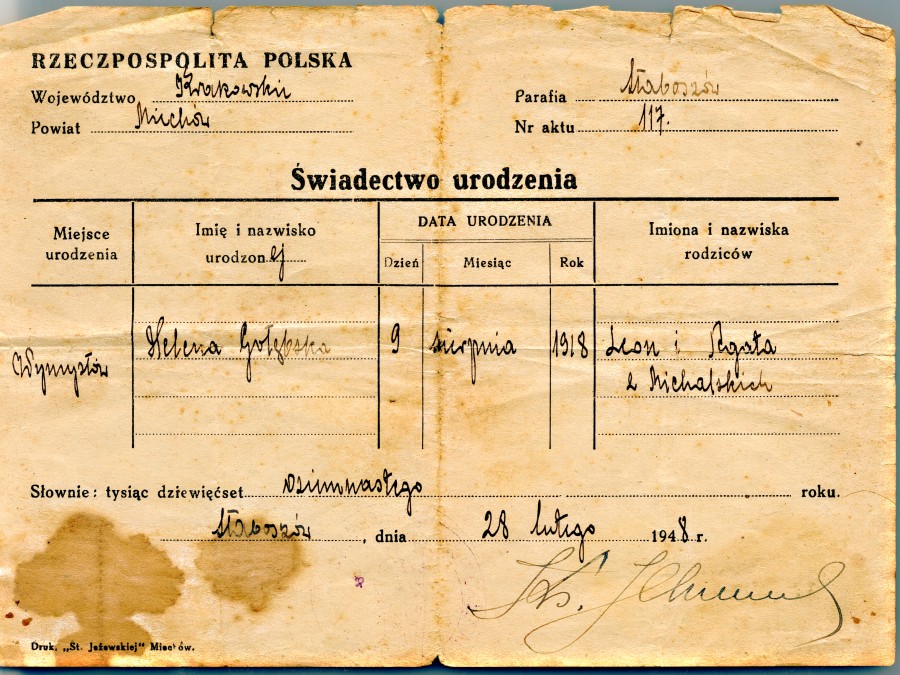 RZECZPOSPOLITA POLSKA
Województwo Krakowskie
Powiat Miechów
Parafia Słaboszów
Nr aktu 117.
Świadectwo urodzenia
Miejsce urodzenia
Imię i nazwisko urodzonej
DATA URODZENIA
Dzień Miesiąc Rok
Imiona i nazwiska rodziców
Wymysłów Helena Gołębska 9 sierpnia 1918 Leon i Agata
z Michalskich
Słownie: tysiąc dziewięćset osiemnastego roku.
Słaboszów, dnia 28 lutego 1948 r.
Ks.
Druk. „St. Jeżewskiej" Miechów.